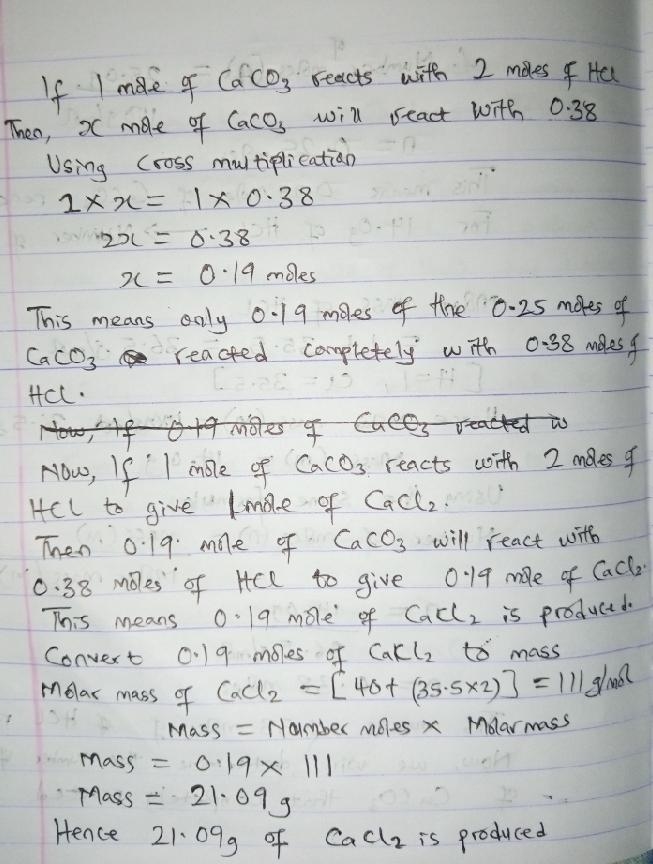 If 1 mole of CaCO3 reacts with 2 moles of HCl
Then, x mole of CaCO3 will react with 0.38
Using Cross multiplication
2 × x = 1 × 0.38
2x = 0.38
x = 0.19 moles
This means only 0.19 moles of the 0.25 moles of
CaCO3 reacted completely with 0.38 moles of
HCl.
Now, If 0.19 moles of CaCO3 reacted w
Now, If 1 mole of CaCO3 reacts with 2 moles of
HCl to give 1 mole of CaCl2.
Then 0.19 mole of CaCO3 will react with
0.38 moles of HCl to give 0.19 mole of CaCl2.
This means 0.19 mole of CaCl2 is produced.
Convert 0.19 moles of CaCl2 to mass
Molar mass of CaCl2 = [40+ (35.5×2)] = 111 g/mol
Mass = Number moles × Molar mass
Mass = 0.19 × 111
Mass = 21.09 g
Hence 21.09g of CaCl2 is produced